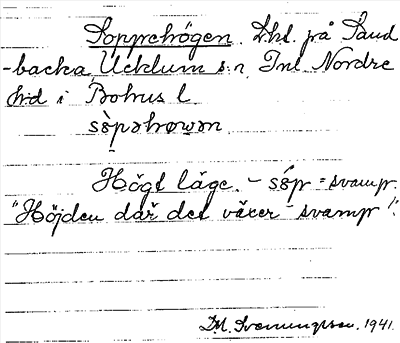 Sopprehögen. Lht. på Sand
-backa, Ucklum s:n Inl Nordre
h:d i Bohus l.
sòpəhøwən
Högt läge. - sóp = svamp.
"Höjden där det växer svamp".
D.M. Svenungsson. 1941.